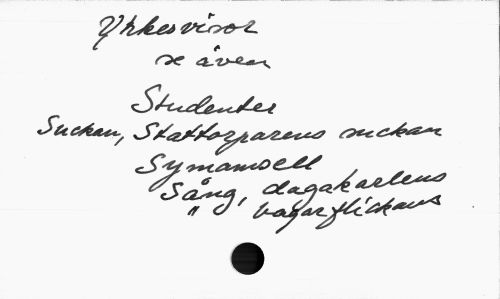 Yrkesvisor
se även
Studenter
Suckan, Stattorparens suckan
Symamsell
Sång, dagakarlens
" bagarflickans